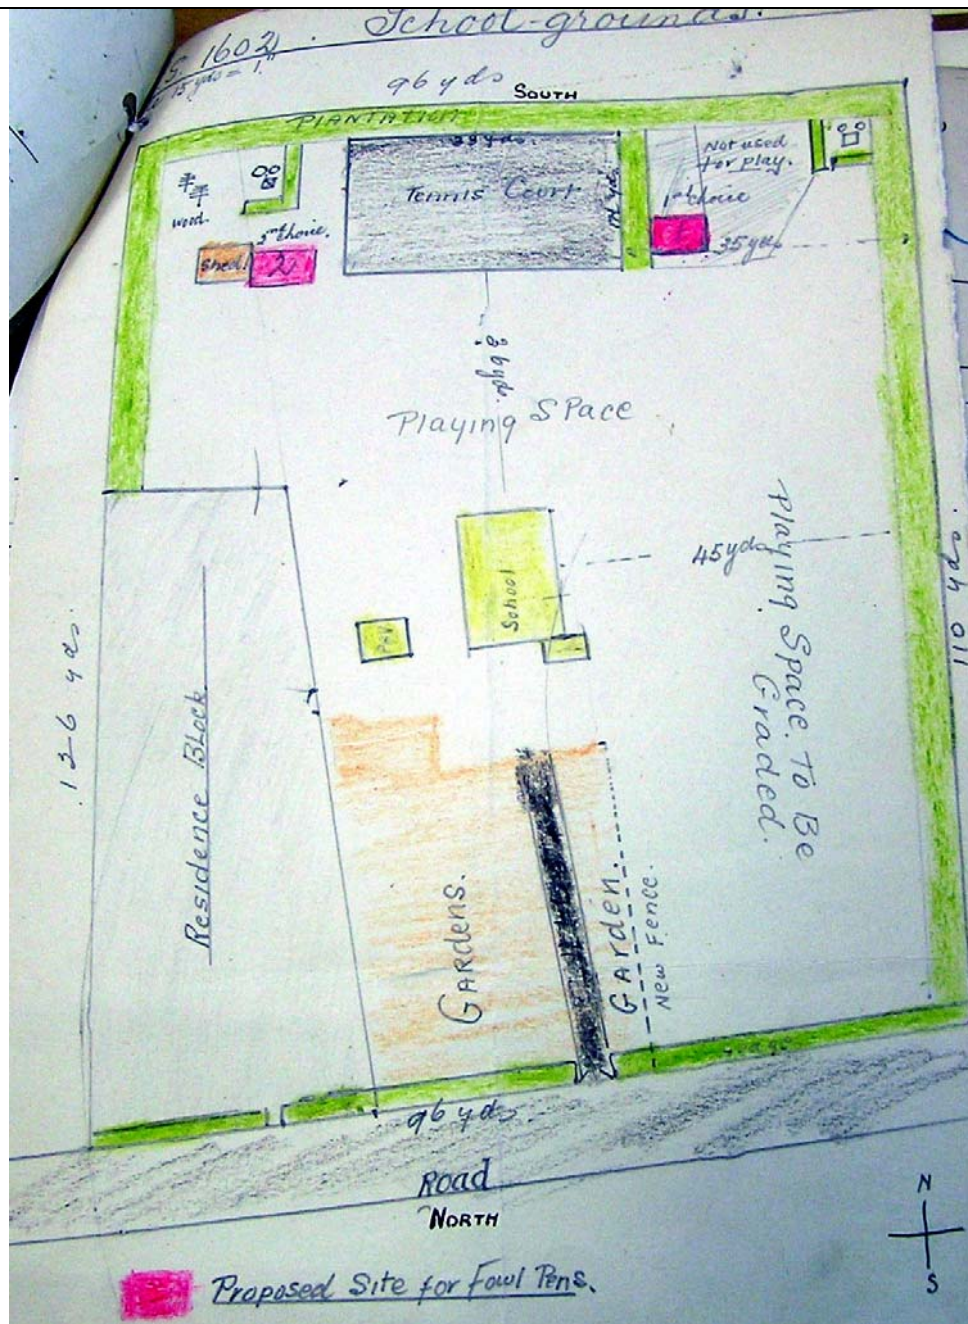 School-grounds.
S. 1602
15 yds = 1"
96 yds
SOUTH
PLANTATION
Tennis Court
Not used
for play.
1st choice
1
35yds
wood.
choice.
shed.
2
Playing Space
45yds
School
Playing Space. To Be
Graded.
126 yds
Residence Block
GARDENS.
GARDEN.
New Fence.
96 yds
Road
NORTH
N
S
Proposed Site for Fowl Pens.